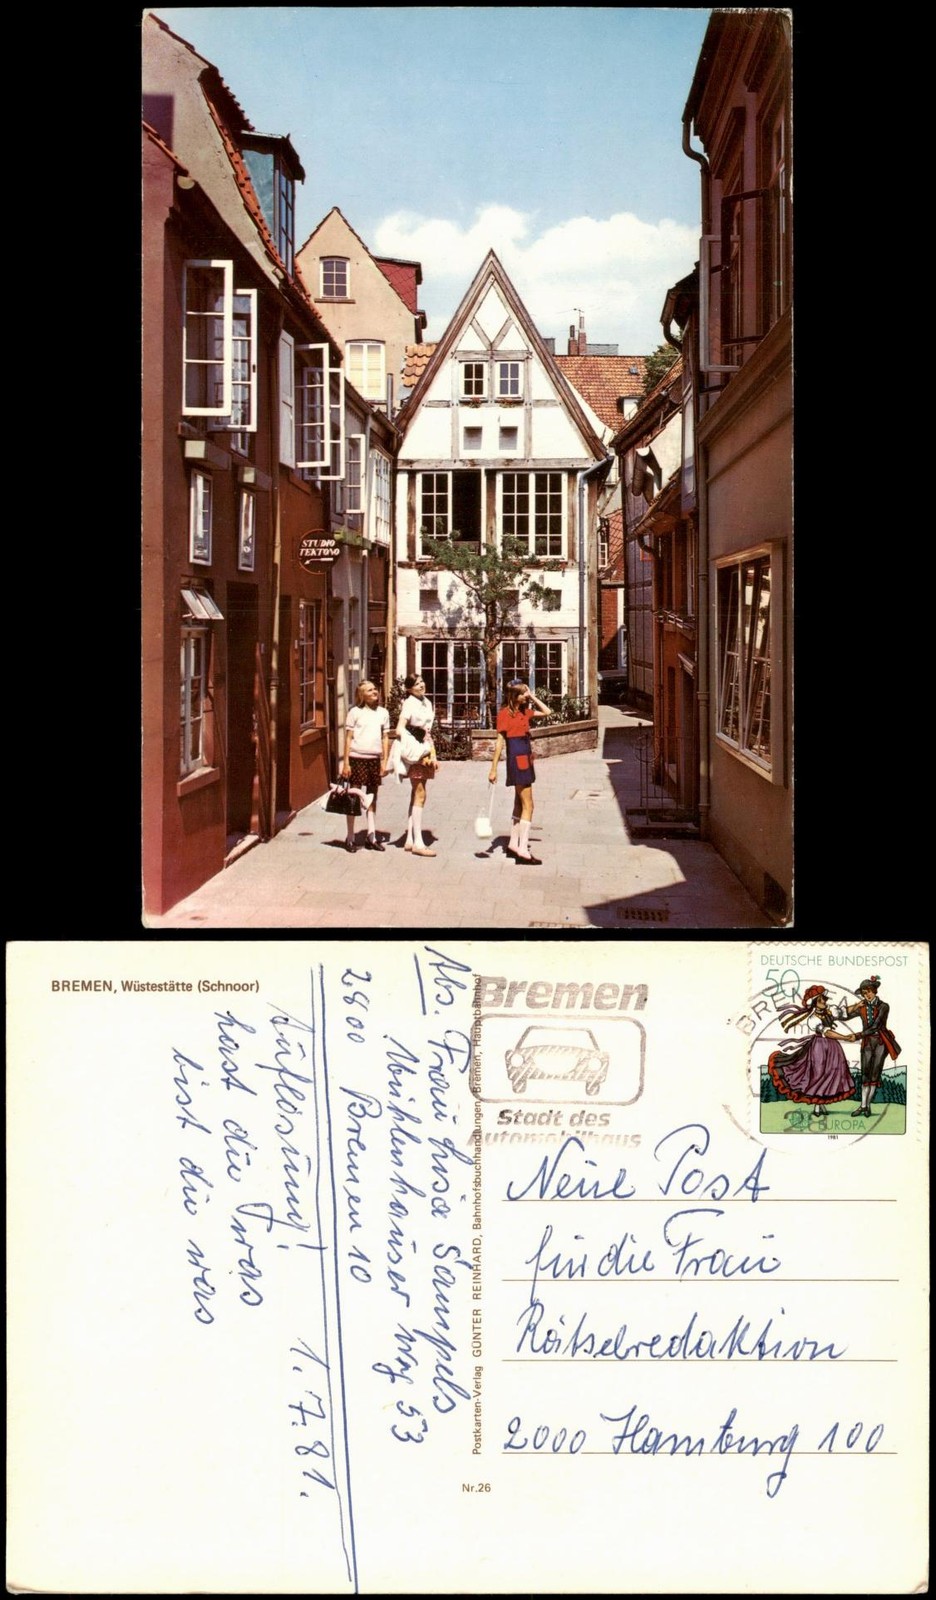 STUDIO
TEKTONO
BREMEN, Wüstestätte (Schnoor)
Auflösung! 1.7.81.
hast du was
bist du was
Abs. Frau Luise Sampels
Mühlenhäuser Weg 53
2800 Bremen 10
Postkarten-Verlag GÜNTER REINHARD, Bahnhofsbuchhandlungen, Bremen, Hauptbahnhof
Nr.26
Bremen
Stadt des
Automobilbaus
BREMEN
28
DEUTSCHE BUNDESPOST
50
EUROPA
1981
Neue Post
für die Frau
Rätselredaktion
2000 Hamburg 100